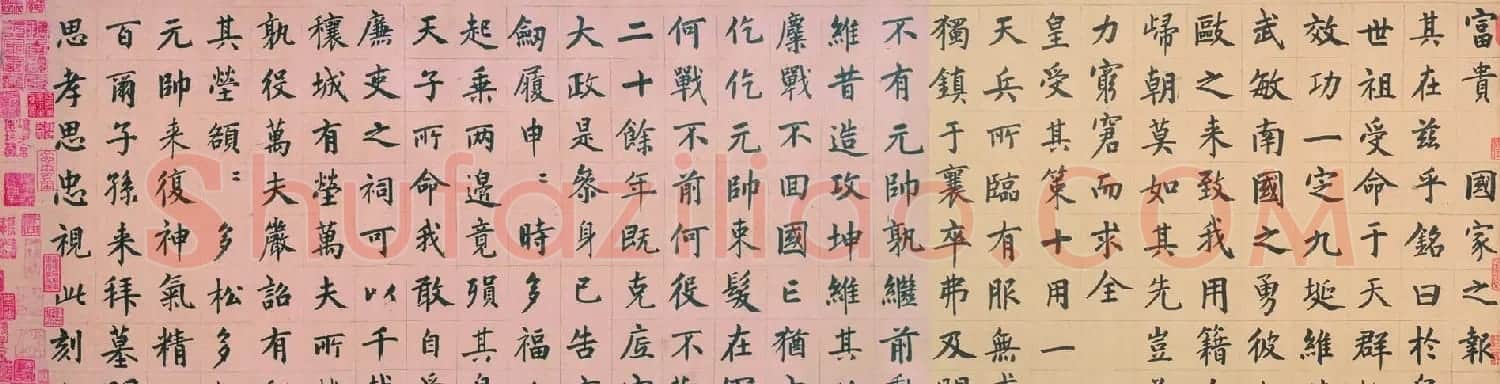 富貴 國家之報
其在茲乎銘曰於
世祖受命于天群
效功一定九埏維
武敏南國之勇彼
歐之来致我用籍
歸朝莫如其先豈
力窮窘而求全
皇受其策十用一
天兵所臨有服無
獨鎮于襄卒弗及
不有元帥孰繼前
維昔造攻坤維其
麋戰不回國亡猶
仡仡元帥束髮在
何戰不前何役不
二十餘年既克
大政是叅身已告
劒履申〻時多福
起乘兩邉竟殞其
天子所命我敢自
廉吏之祠可以千
穰城有塋萬夫所
孰役萬夫嚴詔有
其塋額〻多松多
元帥来復神氣精
百爾子孫来拜墓
思孝思忠視此刻
Shufaziliao.COM